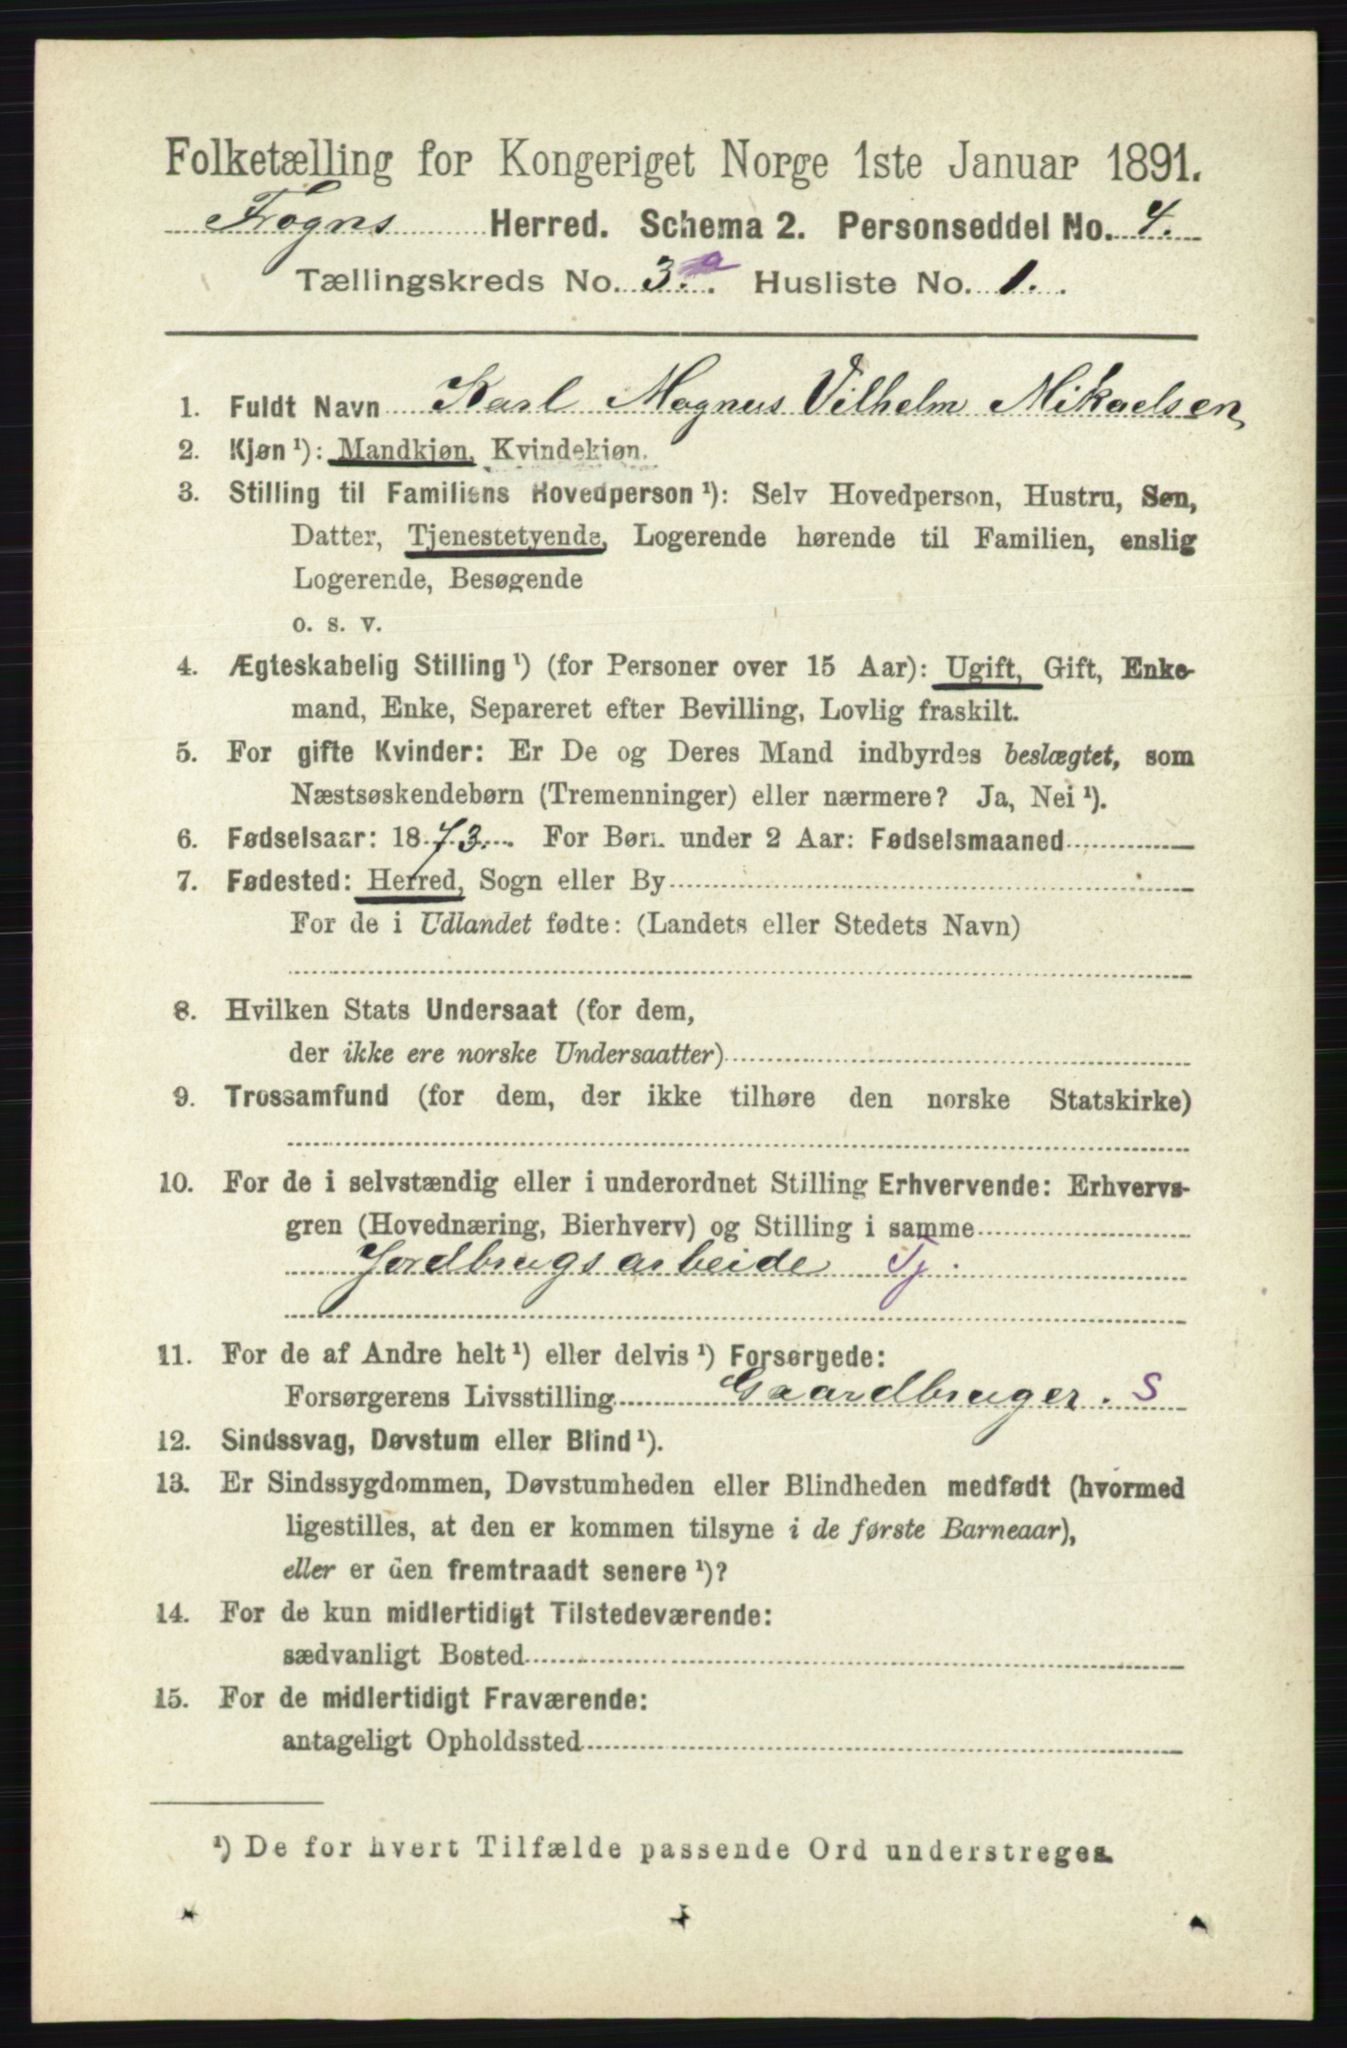 Folketælling for Kongeriget Norge 1ste Januar 1891.
Frogns Herred. Schema 2. Personseddel No. 4.
Tællingskreds No. 3.a Husliste No. 1.
1. Fuldt Navn Karl Magnus Vilhelm Mikaelsen,
2. Kjøn ¹): Mandkjøn, Kvindekjøn.
3. Stilling til Familiens Hovedperson ¹): Selv Hovedperson, Hustru, Søn,
Datter, Tjenestetyende, Logerende hørende til Familien, enslig
Logerende, Besøgende
o. s. v.
4. Ægteskabelig Stilling ¹) (for Personer over 15 Aar): Ugift, Gift, Enke-
mand, Enke, Separeret efter Bevilling, Lovlig fraskilt.
5. For gifte Kvinder: Er De og Deres Mand indbyrdes beslægtet, som
Næstsøskendebørn (Tremenninger) eller nærmere? Ja, Nei ¹).
6. Fødselsaar: 1873. For Børn under 2 Aar: Fødselsmaaned
7. Fødested: Herred, Sogn eller By
For de i Udlandet fødte: (Landets eller Stedets Navn)
8. Hvilken Stats Undersaat (for dem,
der ikke ere norske Undersaatter)
9. Trossamfund (for dem, der ikke tilhøre den norske Statskirke)
10. For de i selvstændig eller i underordnet Stilling Erhvervende: Erhvervs-
gren (Hovednæring, Bierhverv) og Stilling i samme
Jordbrugsarbeide Tj.
11. For de af Andre helt ¹) eller delvis ¹) Forsørgede:
Forsørgerens Livsstilling Gaardbruger. S
12. Sindssvag, Døvstum eller Blind ¹).
13. Er Sindssygdommen, Døvstumheden eller Blindheden medfødt (hvormed
ligestilles, at den er kommen tilsyne i de første Barneaar),
eller er den fremtraadt senere ¹)?
14. For de kun midlertidigt Tilstedeværende:
sædvanligt Bosted
15. For de midlertidigt Fraværende:
antageligt Opholdssted
¹) De for hvert Tilfælde passende Ord understreges.